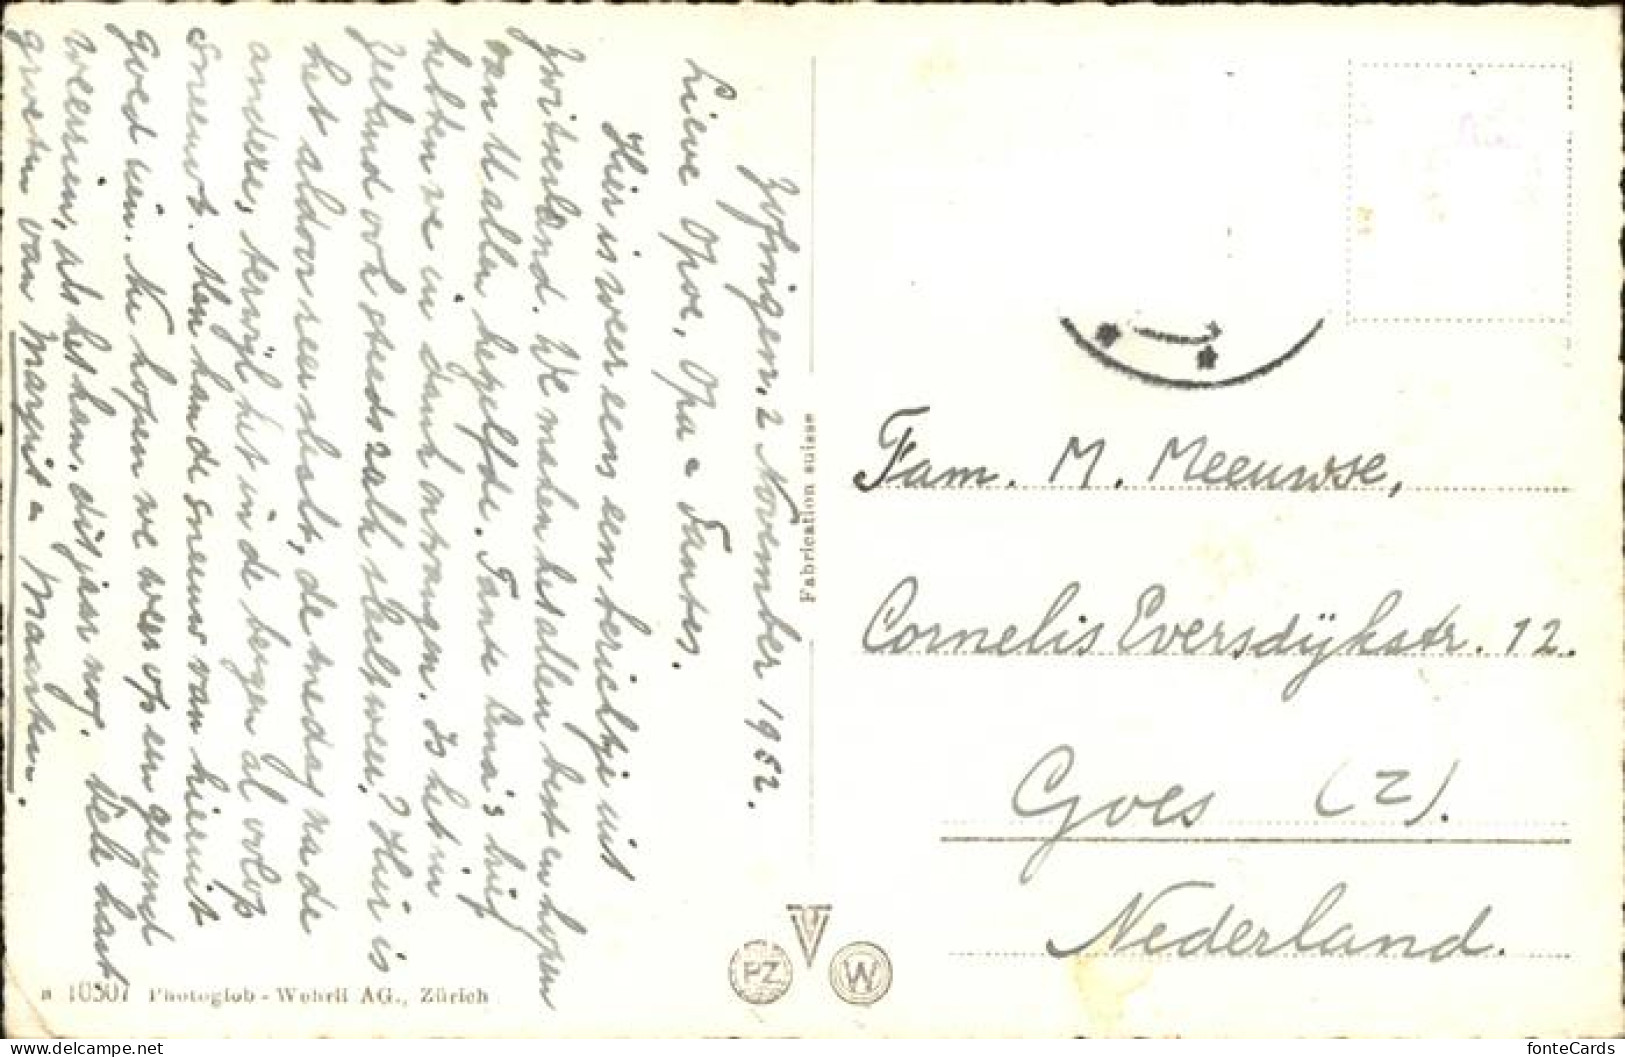 Zofingen, 2 November 1952.
Lieve Opoe, Opa & Tantes.
Hier is weer eens een berichtje uit
Zwitserland. We maken het allen best en hopen
van U allen hetzelfde. Tante Lena's brief
hebben we in dank ontvangen. Is het in
Zeeland ook steeds zulk slecht weer? Hier is
het aldoor reuze slecht, de ene dag na de
andere, terwijl het in de bergen al volop
sneeuwt. Men kan de sneeuw van hieruit
goed zien. Nu hopen we weer op een gezond
weerzien, als het kan, dit jaar nog. Vele hart.
groeten van Margrit & Maarten.
Fabrication suisse
Fam. M. Meeuwse,
Cornelis Eversdijkstr. 12.
Goes (Z).
Nederland.
PZ W
10507 Photoglob-Wehrli AG., Zürich
fonteCards